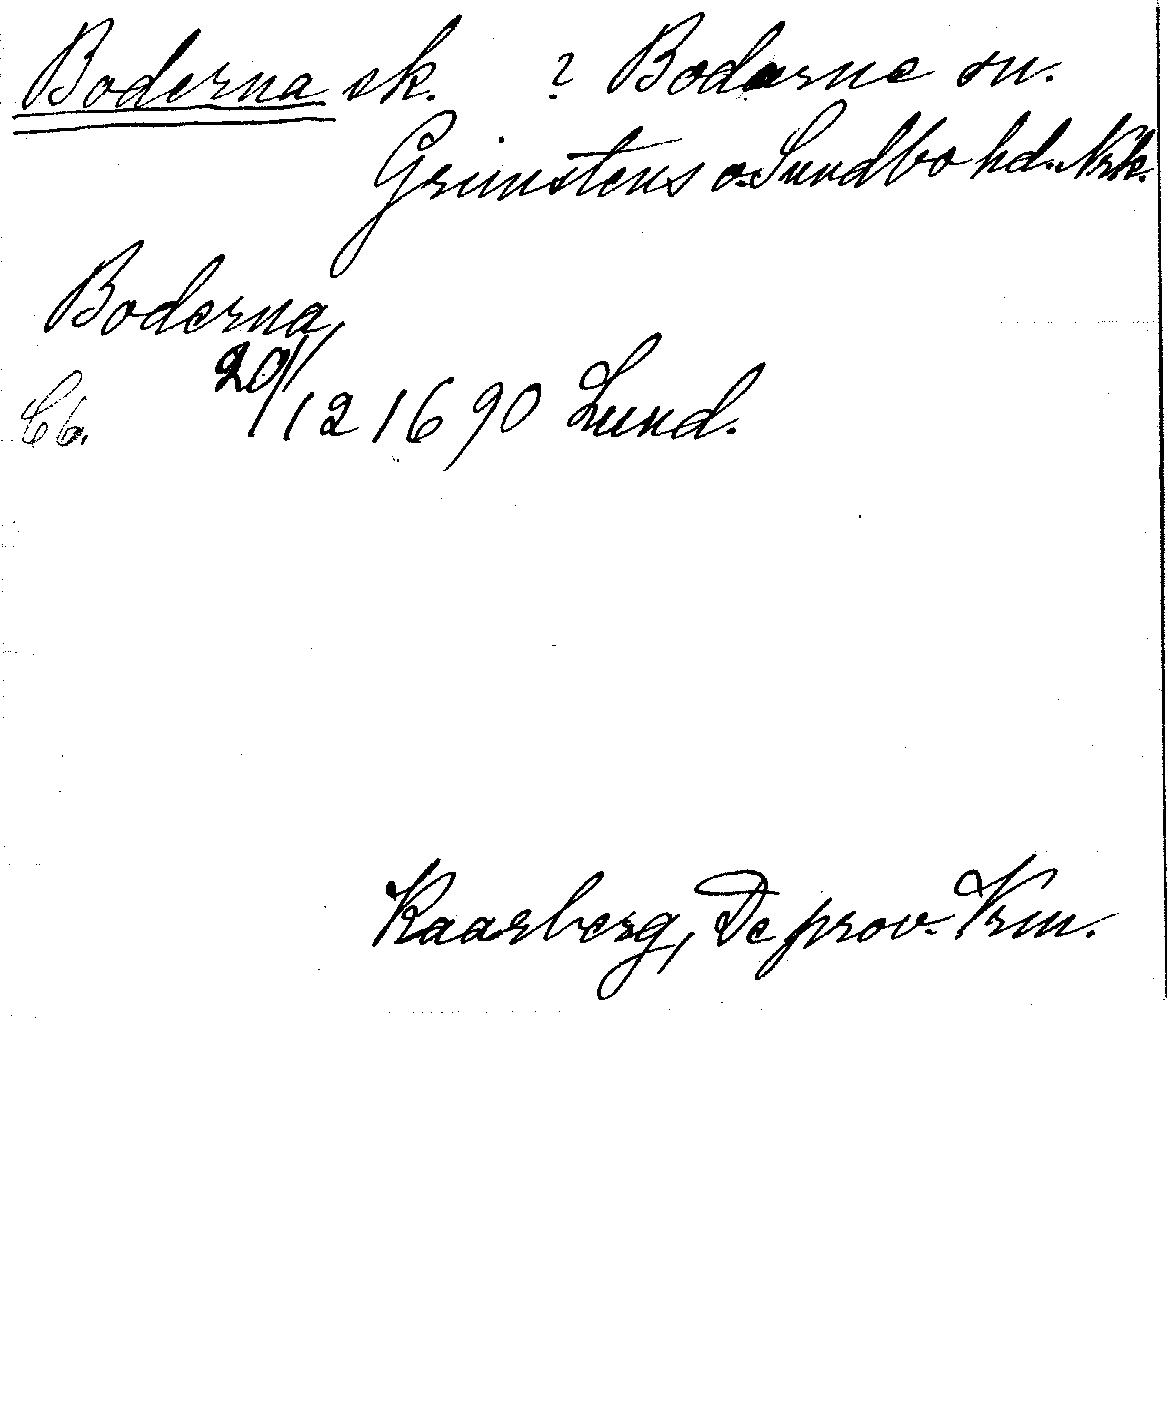 Boderna sk. ? Bodarne sn.
Grimstens o. Sundbo hd. Nrk.
Boderna,
Cb. 20/12 1690 Lund.
Kaarberg, De prov. Vrm.